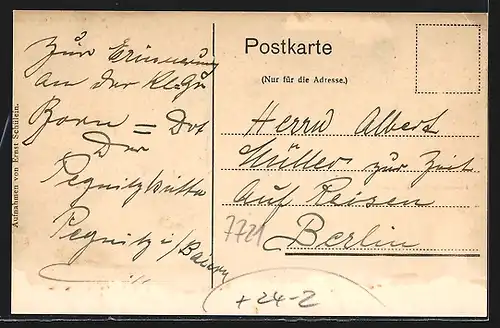 Zur Erinnerung
an der
Born = Dot
Der
Pegnitzhütte
Pegnitz i/Baiern
Aufnahmen von Ernst Schülein.
Postkarte
(Nur für die Adresse.)
Herrn Albert
Müller zur Zeit
Auf Reisen
Berlin
7721
+24-2